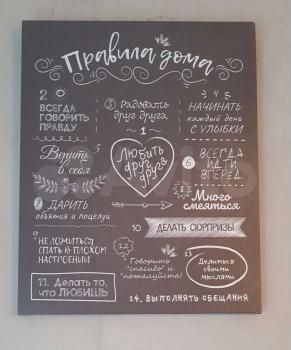 Правила дома
1
Любить
друг
друга
2
ВСЕГДА
ГОВОРИТЬ
ПРАВДУ
3 Радовать
друг друга
4
НАЧИНАТЬ
каждый день
С УЛЫБКИ
5
Верить
в себя
6 ВСЕГДА
ИДТИ
ВПЕРЕД!
7 ДАРИТЬ
объятия и поцелуи
8
Много
смеяться
9 НЕ ЛОЖИТЬСЯ
СПАТЬ В ПЛОХОМ
НАСТРОЕНИИ
10 ДЕЛАТЬ СЮРПРИЗЫ
11. Делать то,
что ЛЮБИШЬ
12
Говорить
"спасибо" и
"пожалуйста!"
13
Делиться
своими
мыслями
14. ВЫПОЛНЯТЬ ОБЕЩАНИЯ